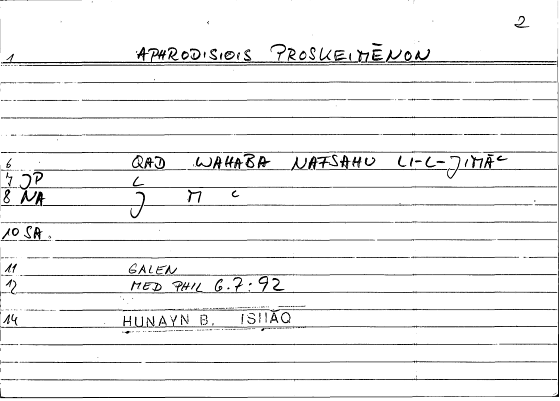 2
1 APHRODISIOIS PROSKEIMĒNON
6 QAD WAHABA NAFSAHU LI-L-JIMĀʿ
7 JP L
8 NA J M ʿ
10 SA.
11 GALEN
12 MED PHIL 6.7:92
14 HUNAYN B. ISḤĀQ